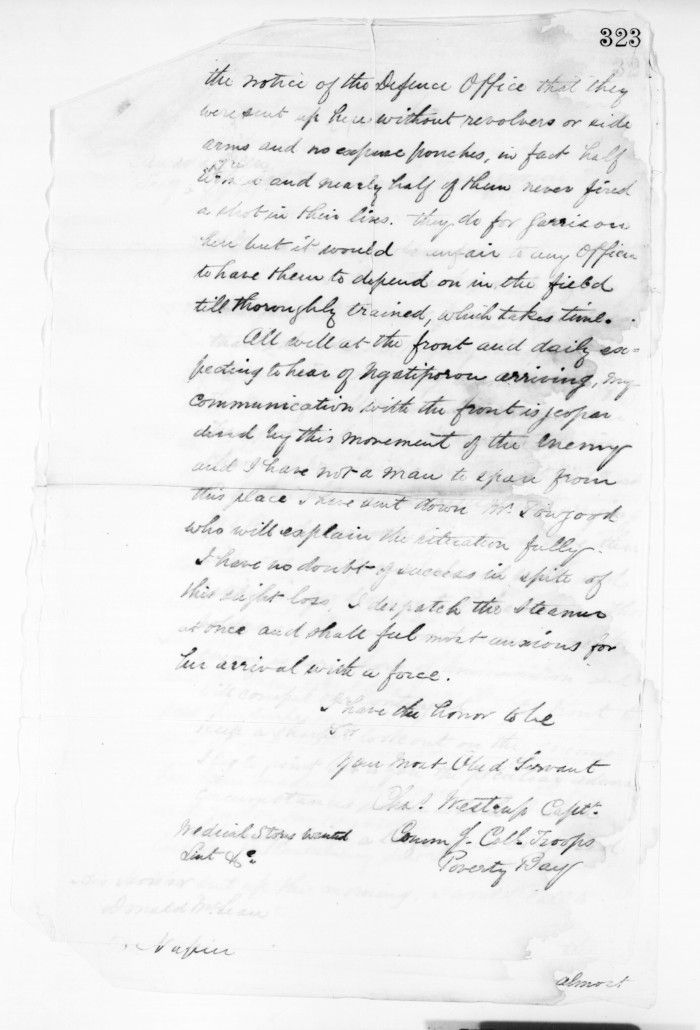 323
the notice of the Defence Office that they
were sent up here without revolvers or side
arms and no expense pouches, in fact half
and nearly half of them never fired
a shot in their lives. they do for garrison
here but it would unfair to any Officer
to have them to depend on in the field
till thoroughly trained, which takes time.
All well at the front and daily ex-
pecting to hear of Ngatiporou arriving, my
communication with the front is jeopar
dised by this movement of the Enemy
and I have not a man to spare from
this place I have sent down Mr. Towgood
who will explain the situation fully.
I have no doubt of success in spite of
this slight loss, I despatch the Steamer
at once and shall feel most anxious for
her arrival with a force.
I have the honor to be
Sir
your Most Obed Servant
Chas. Westrup Captn.
Medical Stores wanted Comm g. Coll. Troops
Lint &c. Poverty Bay
His Honor
Donald McLean
Napier
almost